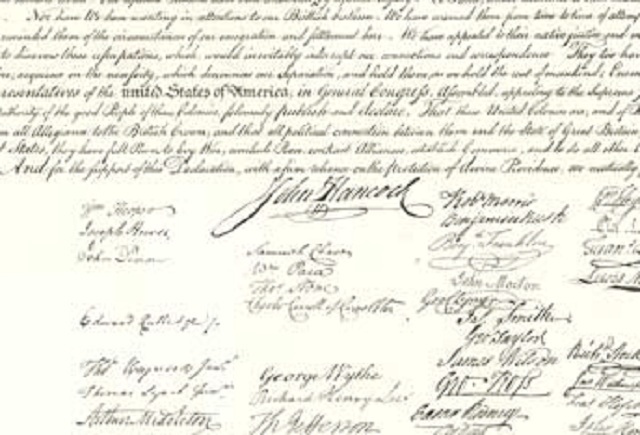 Nor have We been wanting in attentions to our British brethren. We have warned them from time to time of
of the circumstances of our emigration and settlement here. We have appealed to their native justice and
to disavow these usurpations, which, would inevitably interrupt our connections and correspondence. They too have
acquiesce in the necessity, which denounces our Separation, and hold them, as we hold the rest of mankind,
resentatives of the united States of America, in General Congress, Assembled, appealing to the Supreme
authority of the good People of these Colonies, solemnly publish and declare, That these United Colonies are, and of
from all Allegiance to the British Crown, and that all political connection between them and the State of Great Britain
States, they have full Power to levy War, conclude Peace, contract Alliances, establish Commerce, and to do all other
And for the support of this Declaration, with a firm reliance on the Protection of divine Providence, we mutually
John Hancock
Wm Hooper
Joseph Hewes
John Penn
Edward Rutledge
Thos Heyward Junr
Thomas Lynch Junr
Arthur Middleton
Samuel Chase
Wm Paca
Thos Stone
Charles Carroll of Carrollton
George Wythe
Richard Henry Lee
Th Jefferson
Robt Morris
Benjamin Rush
Benj Franklin
John Morton
Geo Clymer
Jas Smith
Geo Taylor
James Wilson
Geo Ross
Caesar Rodney